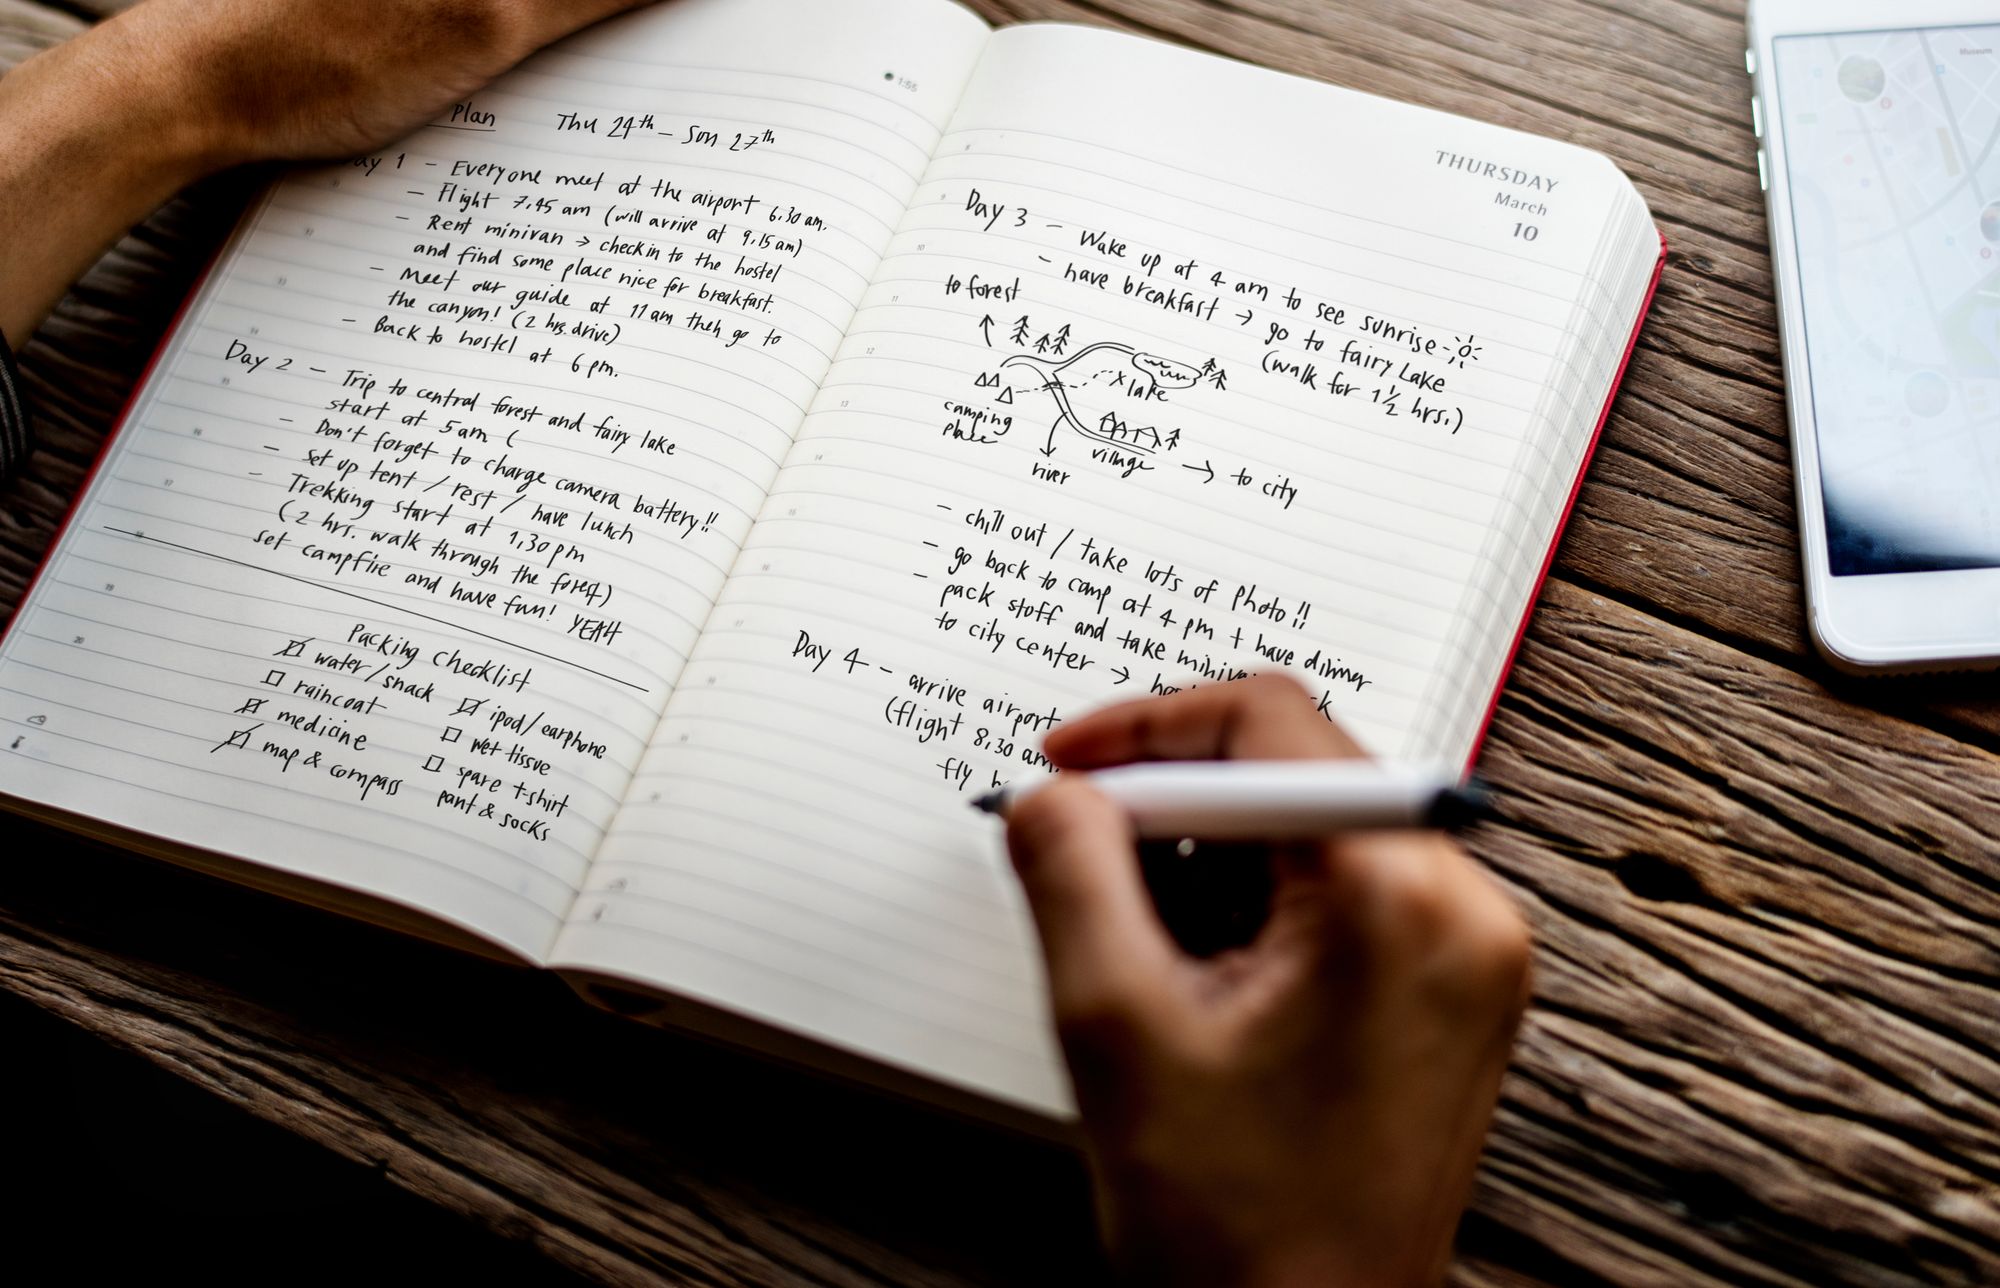 Plan Thu 24th – Sun 27th
1:55
Day 1 – Everyone meet at the airport 6.30 am.
– Flight 7.45 am (will arrive at 9.15 am)
– Rent minivan → checkin to the hostel
and find some place nice for breakfast.
– Meet our guide at 11am then go to
the canyon! (2 hrs. drive)
– Back to hostel at 6 pm.
Day 2 – Trip to central forest and fairy lake
start at 5am (
– Don't forget to charge camera battery!!
– set up tent / rest / have lunch
– Trekking start at 1.30pm
(2 hrs. walk through the forest)
set campfire and have fun! YEAH
Packing checklist
water/snack
raincoat
medicine
map & compass
ipod/earphone
wet tissue
spare t-shirt
pant & socks
THURSDAY
March
10
Day 3 – Wake up at 4 am to see sunrise
– have breakfast → go to fairy Lake
(walk for 1 1/2 hrs.)
to forest
X lake
camping
place
village → to city
river
– chill out / take lots of photo!!
– go back to camp at 4 pm + have dinner
– pack stoff and take
to city center →
Day 4 – arrive airport
(flight 8.30 am.
fly
8
9
10
11
12
13
14
15
16
17
18
19
20
Museum